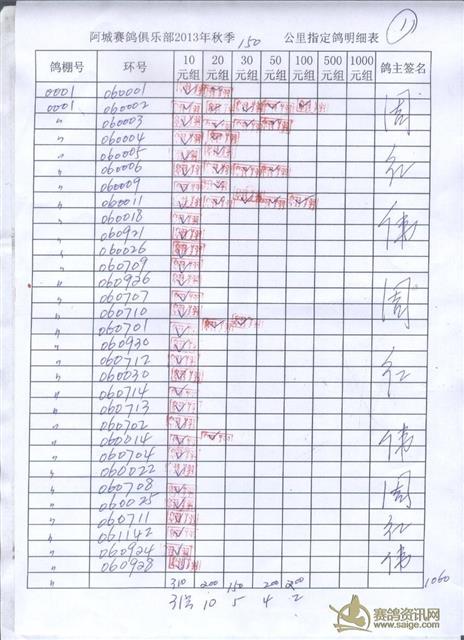 ①
阿城赛鸽俱乐部2013年秋季150公里指定鸽明细表
鸽棚号 环号 10元组 20元组 30元组 50元组 100元组 500元组 1000元组 鸽主签名
0001 060001
0001 060002 周
〃 060003
〃 060004
〃 060005 红
〃 060006
〃 060009
〃 060011 伟
〃 060018
〃 060921
〃 060026
〃 060709
〃 060926 周
〃 060707
〃 060710
〃 060701
〃 060930
〃 060712 红
〃 060030
〃 060714
〃 060713
〃 060702
〃 060014 伟
〃 060704
〃 060022
〃 060708 周
〃 060025
〃 060711 红
〃 061142
〃 060924 伟
〃 060928
〃 310 200 150 200 200 1060
31 10 5 4 2
赛鸽资讯网
www.saige.com